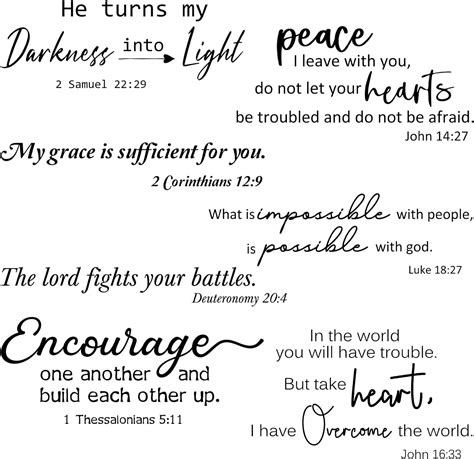 He turns my
Darkness into Light
2 Samuel 22:29
peace
I leave with you,
do not let your hearts
be troubled and do not be afraid.
John 14:27
My grace is sufficient for you.
2 Corinthians 12:9
What is impossible with people,
is possible with god.
Luke 18:27
The lord fights your battles.
Deuteronomy 20:4
Encourage
one another and
build each other up.
1 Thessalonians 5:11
In the world
you will have trouble.
But take heart,
I have Overcome the world.
John 16:33